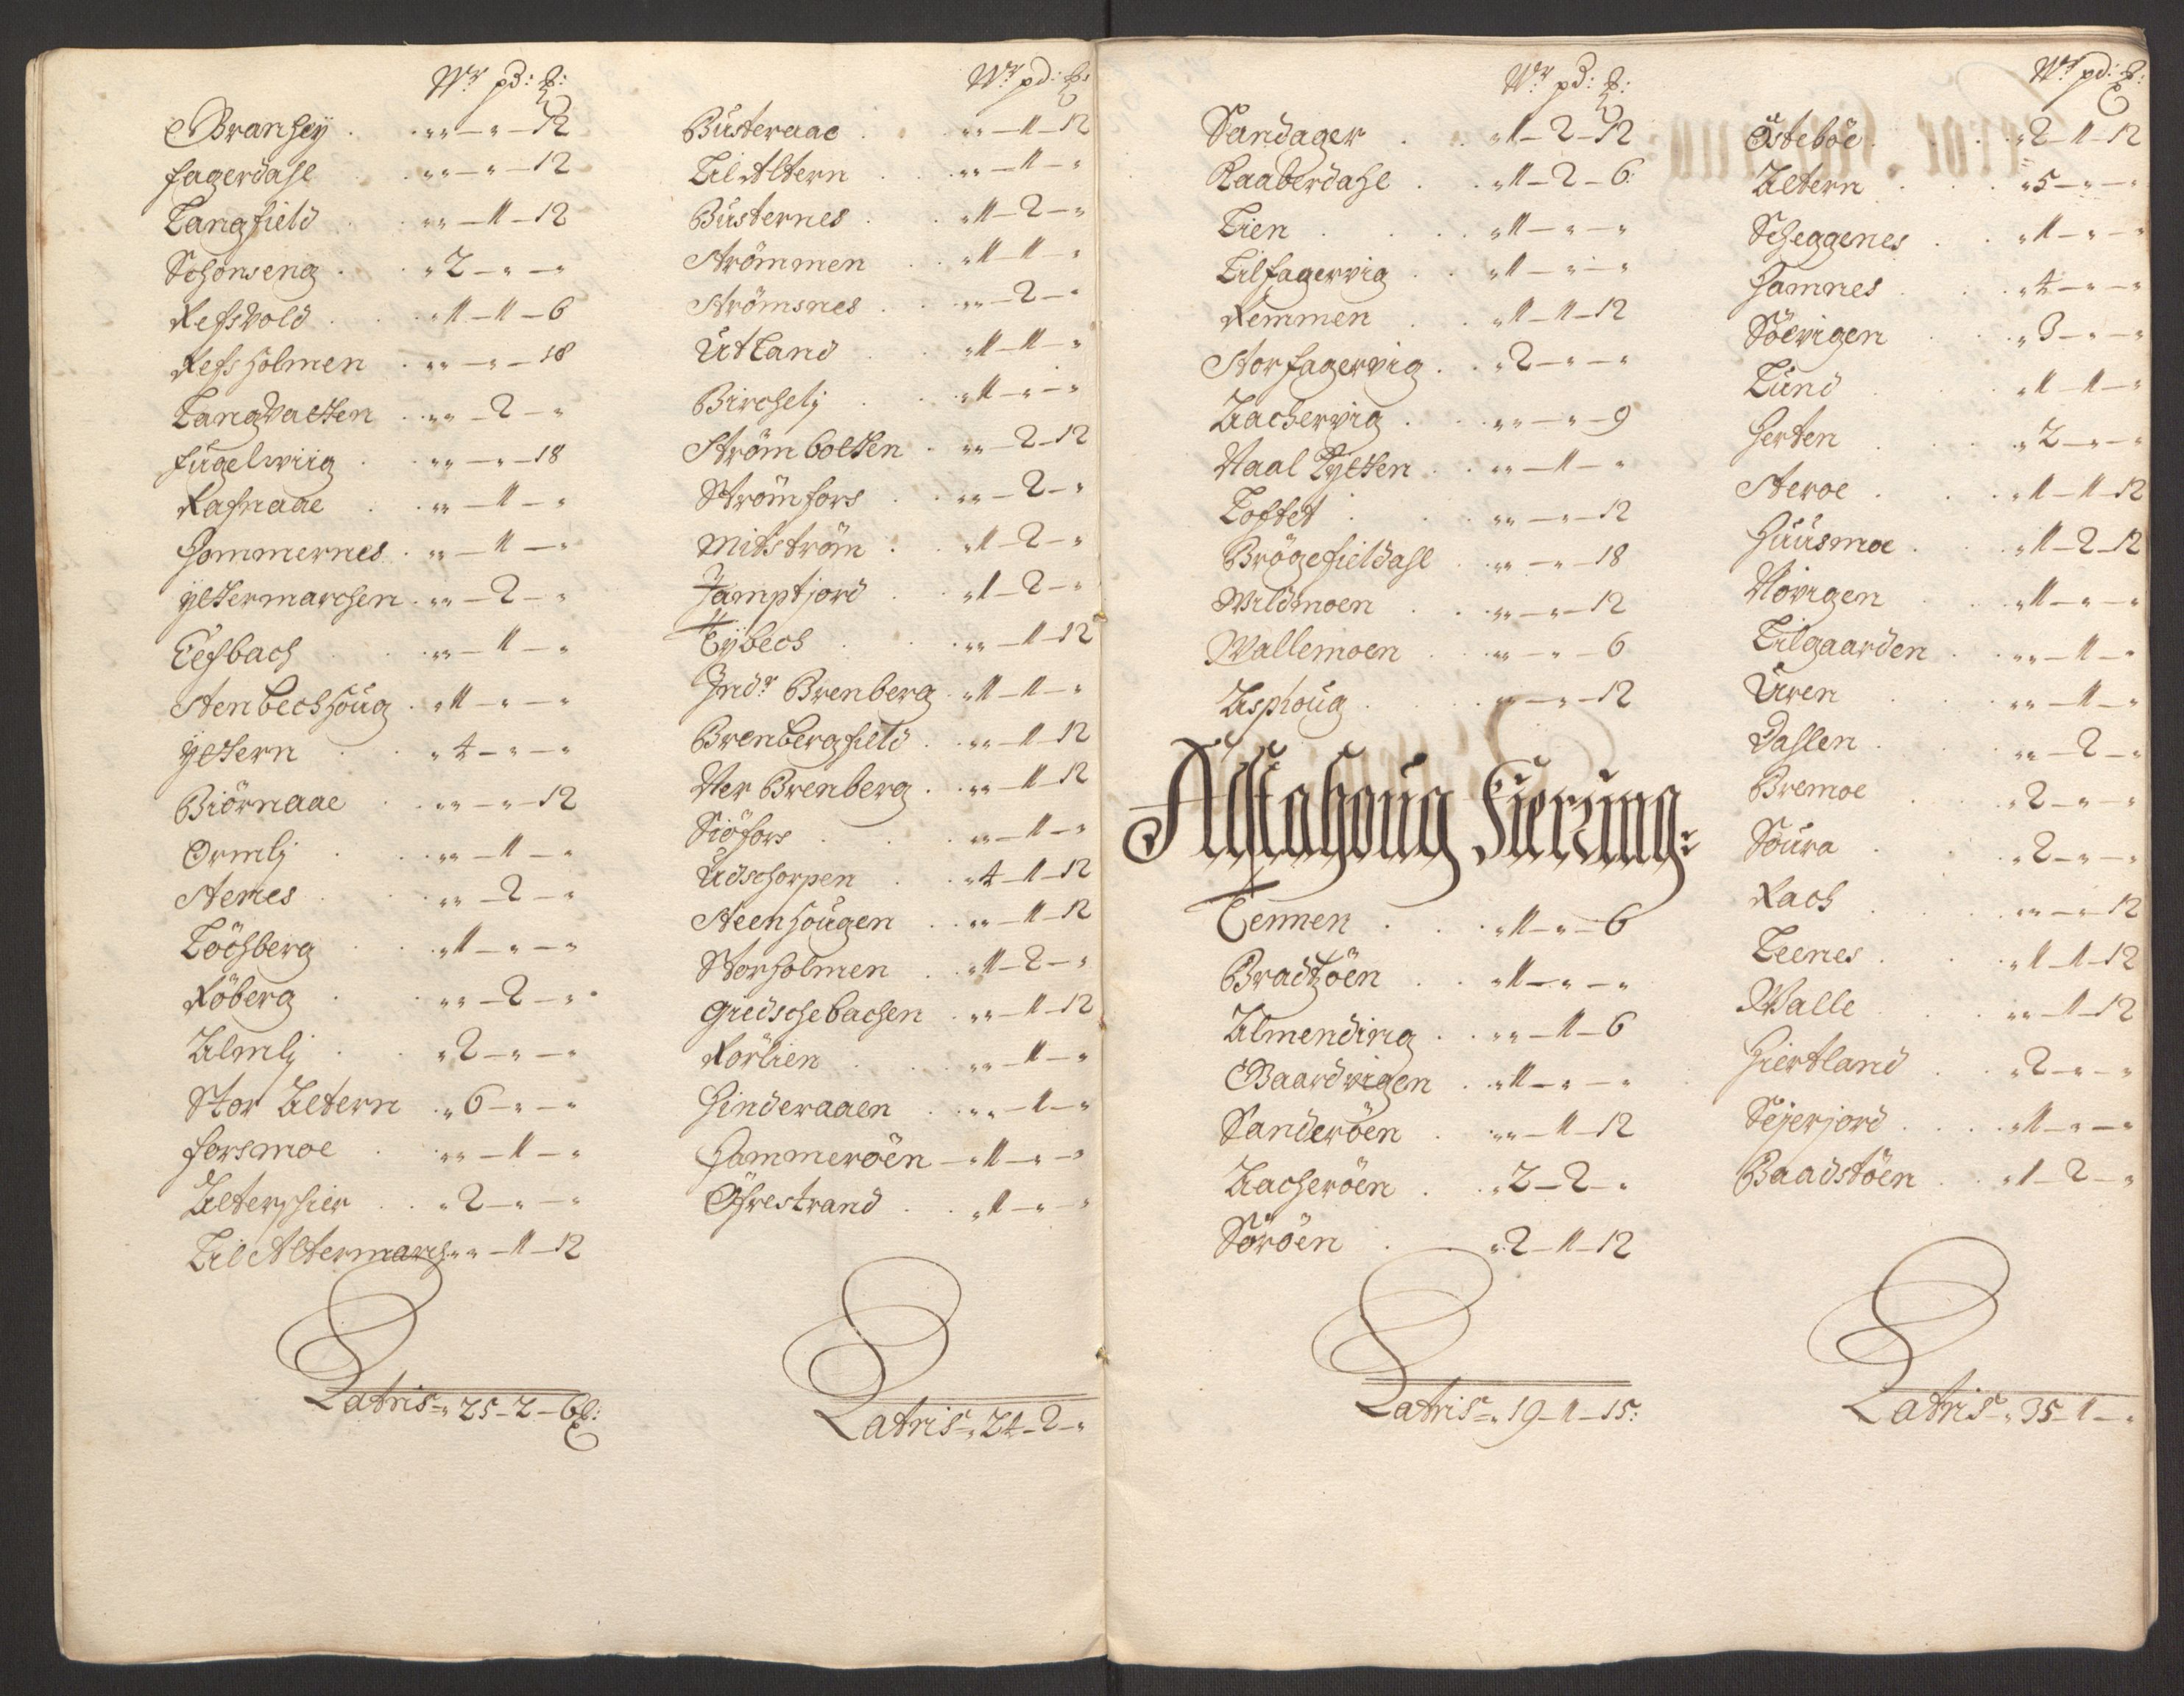 Wr pd: ℔:
Bransøÿ . . „„ — „ — 12
Fagerdahl . . „„ — „ — 12
Langfield . . „„ — 1 — 12
Schonseng . . „ 2 — „ — „
Refsvold . . „ 1 — 1 — 6
Refsholmen . „„ — „ — 18
Langvatten . „„ — 2 — „
Fugelwiig . „„ — „ — 18
Rafnaae . „„ — 1 — „
Hommernes . „„ — 1 — „
Ÿttermarchen . „„ — 2 — „
Eefbach . „„ — 1 — „
Stenbechhoug . „ 1 — „ — „
Ÿttern . „ 4 — „ — „
Biörnaae . „„ — „ — 12
Ormlj . „„ — 1 — „
Stenes . „„ — 2 — „
Löchberg . „ 1 — „ — „
Röberg . „„ — 2 — „
Almlj . „ 2 — „ — „
Stor Altern . „ 6 — „ — „
Forsmoe . „„ — 1 — „
Alterschier . „ 2 — „ — „
Lil Altermarch . „„ — 1 — 12
Latris „ 25 — 2 — 6 ℔:
Wr pd: ℔:
Busteraae . „„ — 1 — 12
Lil Altern . „„ — 1 — „
Busternes . „ 1 — 2 — „
Strömmen . „ 1 — 1 — „
Strömsnes . „„ — 2 — „
Utland . „ 1 — 1 — „
Birchelj . „ 1 — „ — „
Strömbotten . „„ — 2 — 12
Strömfors . „„ — 2 — „
Mitström . „ 1 — 2 — „
Jamptjord . „ 1 — 2 — „
Tÿbech . „„ — 1 — 12
Indr Brenberg . „ 1 — 1 — „
Brenbergfield . „„ — 1 — 12
Ner Brenberg . „„ — 1 — 12
Siöfors . „„ — 1 — „
Udschorpen . „ 4 — 1 — 12
Steenhougen . „„ — 1 — 12
Storholmen . „ 1 — 2 — „
Giedschebachen . „„ — 1 — 12
Rörlien . „„ — 1 — „
Hinderaaen . „„ — 1 — „
Hammeröen — „ 1 — „ — „
Öfrestrand . „ 1 — „ — „
Latris „ 24 — 2 — „
Wr pd: ℔:
Sandager . „ 1 — 2 — 12
Raaberdahl . „ 1 — 2 — 6
Lien . „ 1 — „ — „
Lilfagervig . „ 1 — „ — „
Remmen . „ 1 — 1 — 12
Storfagervig . „ 2 — „ — „
Aachervig . „„ — „ — 9
Naal Tytten . „„ — 1 — „
Loftet . „„ — „ — 12
Brögefieldahl . „„ — „ — 18
Wildmoen . „„ — „ — 12
Wallemoen . „„ — „ — 6
Asphoug . „„ — „ — 12
Alstahoug Fierzing:
Tennen . „ 1 — „ — 6
Bradtzöen . „ 1 — „ — „
Almending . „„ — 1 — 6
Baardvigen . „ 1 — „ — „
Sanderöen . „„ — 1 — 12
Aacheröen . „ 2 — 2 — „
Söröen . „ 2 — 1 — 12
Latris „ 19 — 1 — 15:
Wr pd: ℔:
Östeböe . „ 2 — 1 — 12
Altern . „ 5 — „ — „
Scheggenes . „ 1 — „ — „
Hamnes . „ 4 — „ — „
Söevigen . „ 3 — „ — „
Lund . „ 1 — 1 — „
Herten . „ 2 — „ — „
Steroe . „ 1 — 1 — 12
Huusmoe . „ 1 — 2 — 12
Növigen . „ 1 — „ — „
Lilgaarden . „„ — 1 — „
Uren . „„ — 1 — „
Dahlen . „„ — 2 — „
Bremoe . „ 2 — „ — „
Soura . „ 2 — „ — „
Rach . „„ — „ — 12
Leenes . „ 1 — 1 — 12
Walle . „„ — 1 — 12
Hiertland . „ 2 — „ — „
Sejerjord . „ 1 — „ — „
Baadstöen . „ 1 — 2 — „
Latris „ 35 — 1 — „